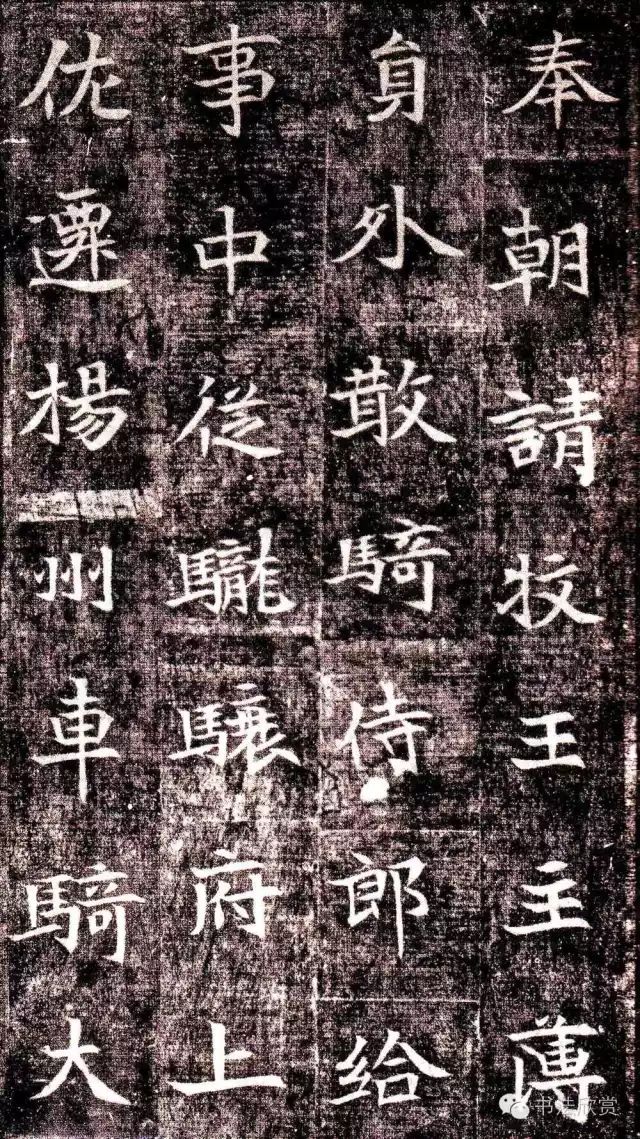 奉朝請牧王主薄
員外散騎侍郎給
事中從䮾驤府上
佐遷揚州車騎大
书法欣赏